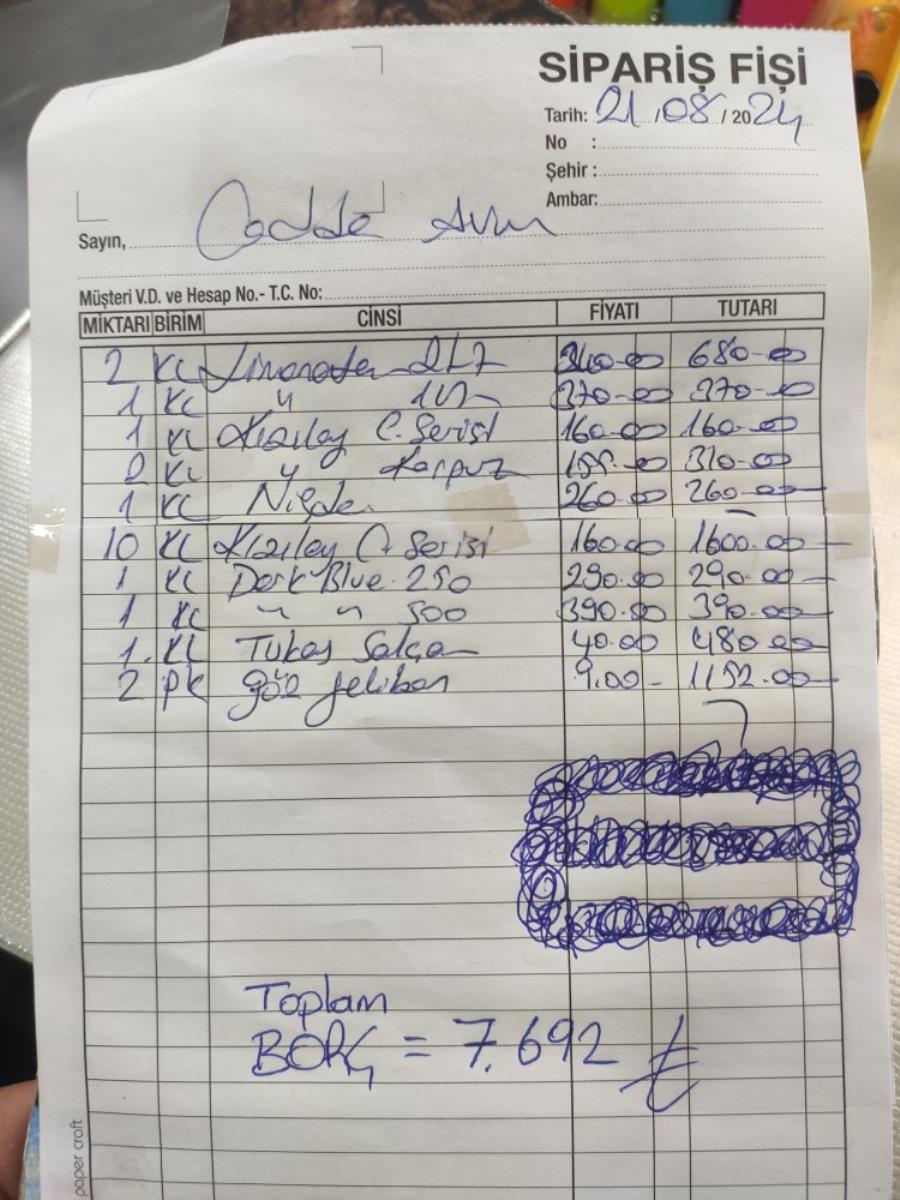 SİPARİŞ FİŞİ
Tarih: 21/08/2024
No :
Şehir :
Ambar:
Sayın, Cadde Avm
Müşteri V.D. ve Hesap No.- T.C. No:
MİKTARI BİRİM CİNSİ FİYATI TUTARI
2 KL Limonata 340-00 680-00
1 KL " 370-00 370-00
1 KL Kızılay C. Serisi 160-00 160-00
2 KL " Karpuz 155-00 310-00
1 KL Niğde 260-00 260-00
10 KL Kızılay C. Serisi 160.00 1600.00
1 KL Dark Blue 250 290.00 290.00
1 KL " " 500 390.00 390.00
1. KL Tukaş Salça 40.00 480.00
2 pk göz jelibon 9.00- 1152.00
Toplam
BORÇ = 7.692 ₺
paper craft